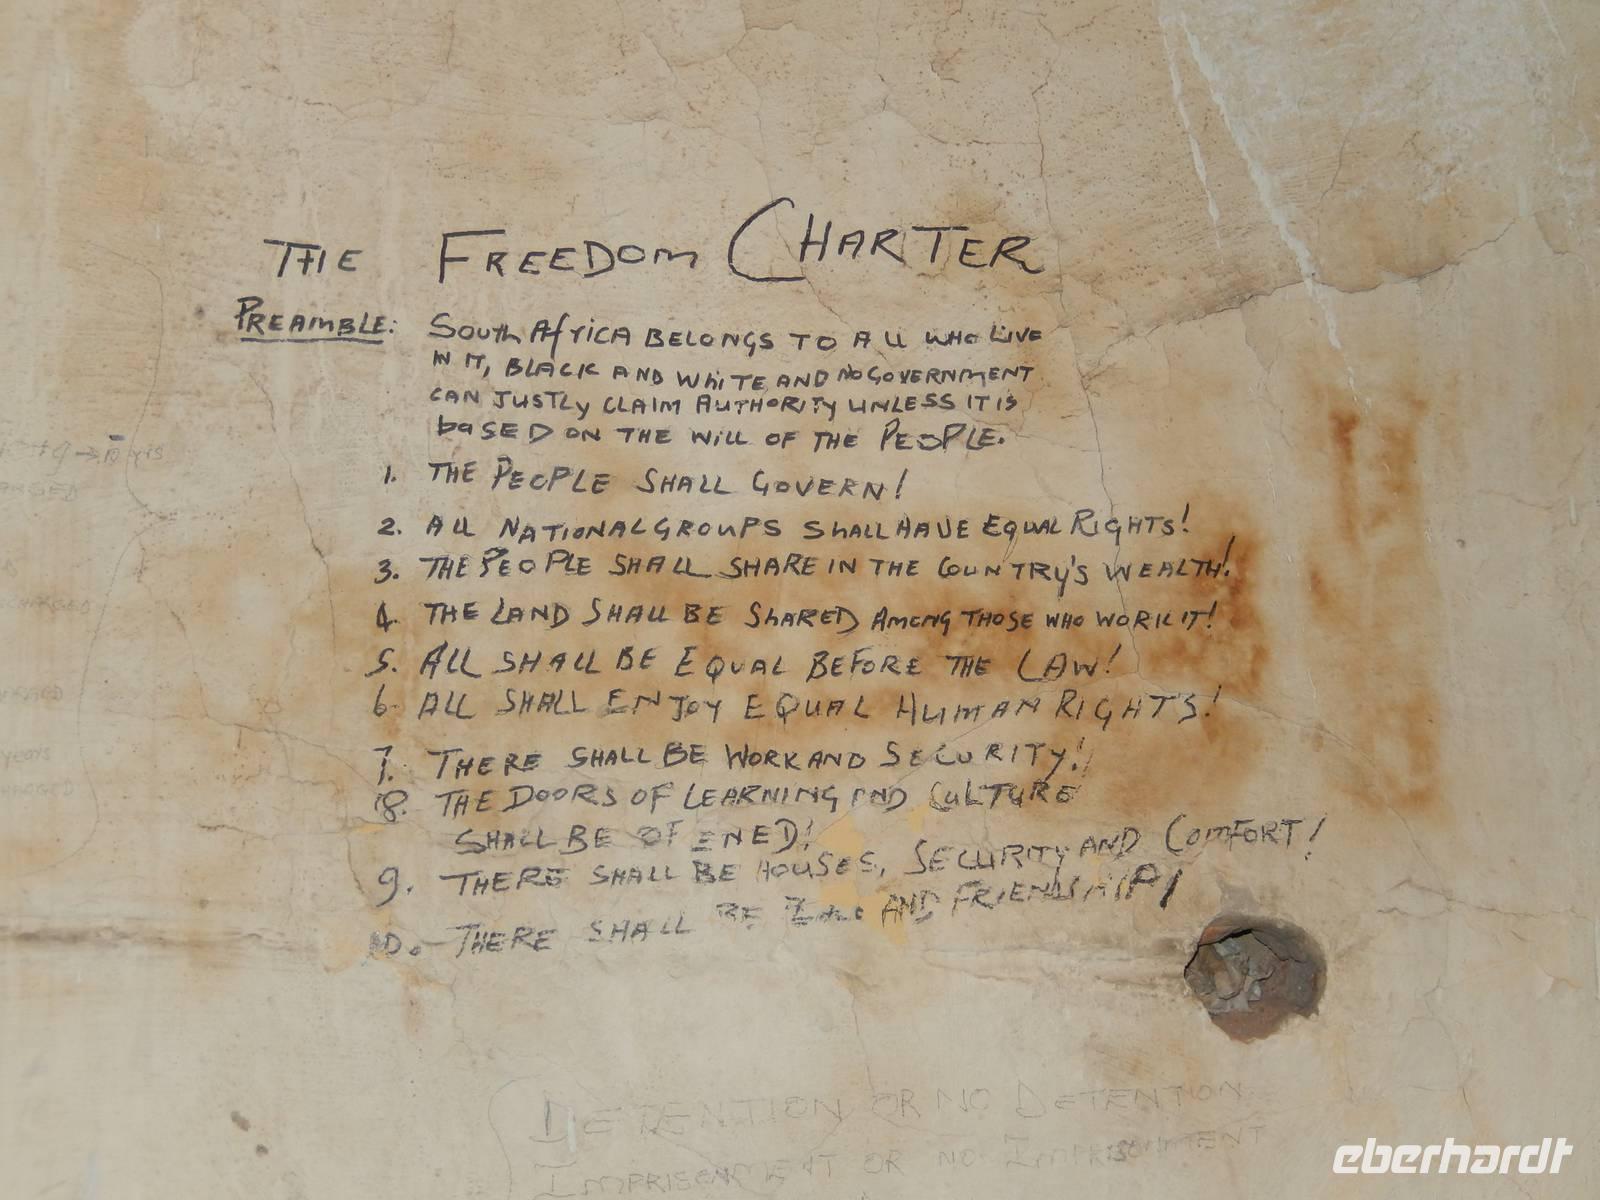 THE FREEDOM CHARTER
PREAMBLE: SOUTH AFRICA BELONGS TO ALL WHO LIVE
IN IT, BLACK AND WHITE AND NO GOVERNMENT
CAN JUSTLY CLAIM AUTHORITY UNLESS IT IS
BASED ON THE WILL OF THE PEOPLE.
1. THE PEOPLE SHALL GOVERN!
2. ALL NATIONAL GROUPS SHALL HAVE EQUAL RIGHTS!
3. THE PEOPLE SHALL SHARE IN THE COUNTRY'S WEALTH!
4. THE LAND SHALL BE SHARED AMONG THOSE WHO WORK IT!
5. ALL SHALL BE EQUAL BEFORE THE LAW!
6. ALL SHALL ENJOY EQUAL HUMAN RIGHTS!
7. THERE SHALL BE WORK AND SECURITY!
8. THE DOORS OF LEARNING AND CULTURE
SHALL BE OPENED!
9. THERE SHALL BE HOUSES, SECURITY AND COMFORT!
10. THERE SHALL BE AND FRIENDSHIP!
DETENTION OR NO DETENTION
IMPRISONMENT OR NO IMPRISONMENT
yrs
years
eberhardt